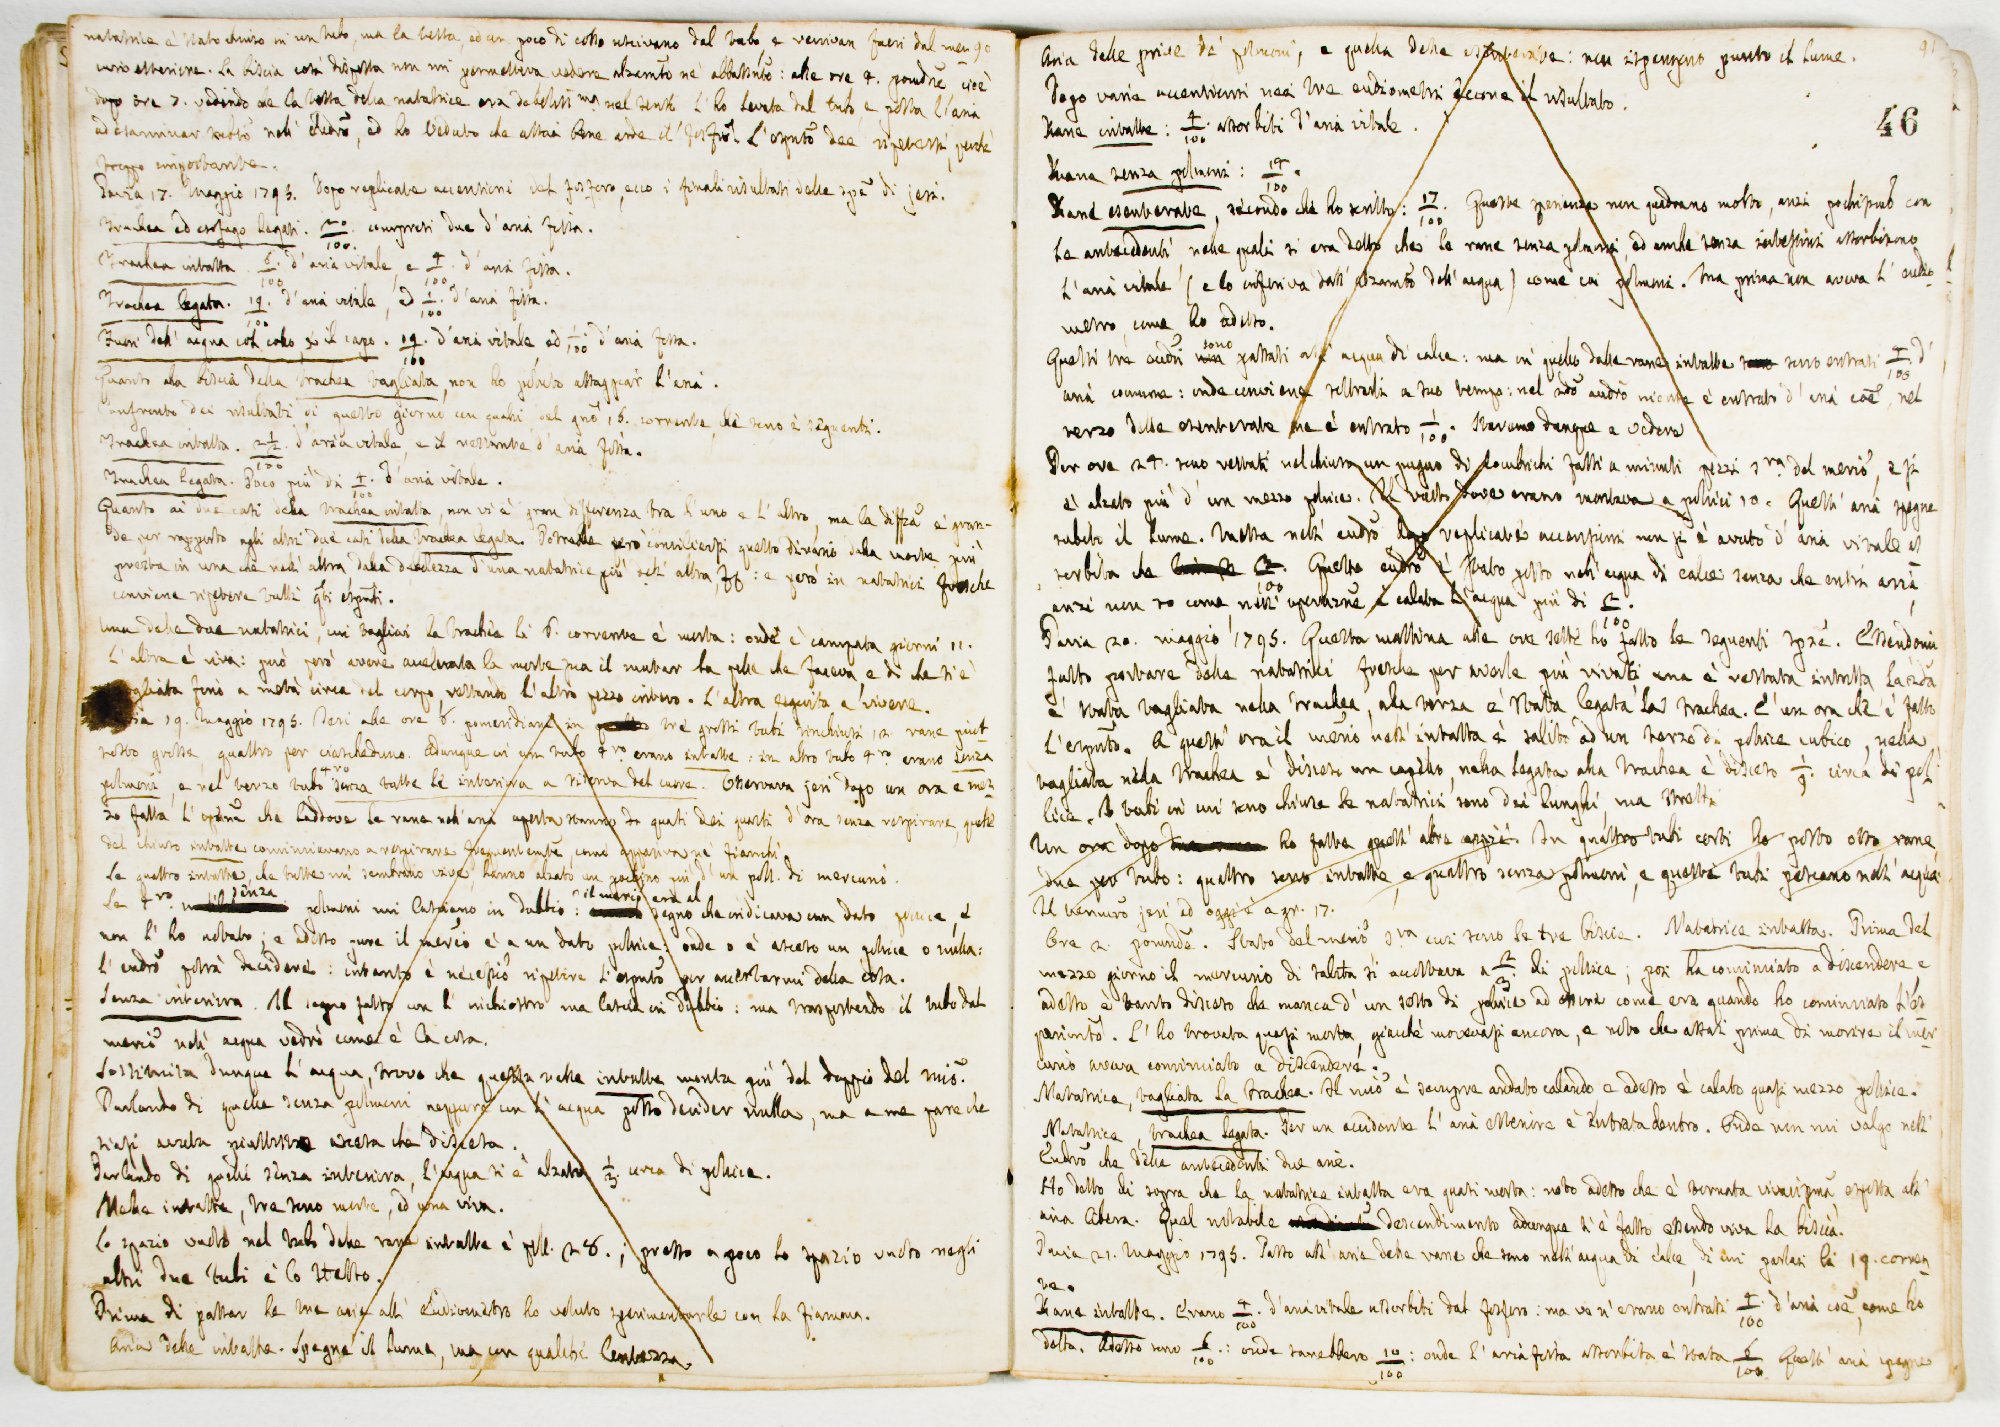 natatrice è stato chiuso in un tubo, ma la testa, ed un poco di collo uscivano dal tubo, e venivan fuori dal mer- 90
curio esteriore. La biscia così disposta non mi permetteva vedere alzamto nè abbassmto: alle ore 4. pomdne cioè
dopo ore 7. vedendo che la testa della natatrice era l'ho levata dal tubo, e posta l'aria
ad esaminar nell' eudro, ed ho veduto che assai bene arde il L'espmto dee ripetersi, perchè
troppo importante.
Pavia 17. Maggio 1795. Dopo replicate accensioni del fosforo, ecco i finali risultati delle spze di jeri.
Trachea ed esofago legati. 20/100. compresi due d'aria fissa.
Trachea intatta. 6/100. d'aria vitale, e 4/100. d'aria fissa.
Trachea legata. 19/100. d'aria vitale, ed 1/100. d'aria fissa.
Fuori dell' acqua col collo, e il capo. 19/100. d'aria vitale, ed 1/100 d'aria fissa.
Quanto alla biscia della trachea tagliata, non ho potuto assaggiar l'aria.
Confronto dei risultati di questo giorno con quelli del gno 16. corrente, che sono i seguenti.
Trachea intatta. d'aria vitale, e il restante d'aria fissa.
Trachea legata. Poco più di 4/100. d'aria vitale.
Quanto ai due casi della trachea intatta, non vi è gran differenza tra l'uno e l'altro, ma la diffza è gran-
de per rapporto agli altri due casi della trachea legata. Potrebbe però conciliarsi questo divario dalla morte più
presta in una che nell' altra, dalla debolezza d'una natatrice più dell' altra, : e però in natatrici fresche
conviene ripetere tutti qti espmti.
Una delle due natatrici, cui tagliai la trachea li 6. corrente è morta: onde è campata giorni 11.
L'altra è viva: può però avere accelerata la morte sua il mutar la pelle che faceva e di che si è
spogliata fino a metà circa del corpo, restando l'altro pezzo intero. L'altra seguita a vivere.
Pavia 19. Maggio 1795. Jeri alle ore 6. pomeridiane in tre grossi tubi rinchiusi 12 rane piut-
tosto grosse, quattro per ciascheduno. Adunque in un tubo 4ro erano intatte: in altro tubo 4ro erano senza
polmoni, e nel terzo tubo 4ro senza tutte le interiora a riserva del cuore. Osservava jeri dopo un ora e mez-
zo fatta l'opne che laddove le rane nell' aria aperta stanno quasi dei quarti d'ora senza respirare, quelle
del chiuso intatte cominciavano a respirare frequentemte, come appariva ne' fianchi.
Le quattro intatte, che tutte mi sembrano vive, hanno alzato un pochino più d'un poll. di mercurio.
Le 4ro senza polmoni mi lasciano in dubbio: il mercio era al segno che indicava un dato pollice, e
non l'ho notato; e adesso pure il mercio è a un dato pollice; onde o è asceso un pollice o nulla:
l'eudro potrà decidere: intanto è necessio ripetere l'espmto per accertarmi della cosa.
Senza interiora. Il segno fatto con l'inchiostro mi lascia in dubbio: ma trasportando il tubo dal
mercio nell' acqua vedrò come è la cosa.
Sostituita dunque l'acqua, trovo che questa nelle intatte monta più del doppio del mio.
Parlando di quelle senza polmoni neppure con l'acqua posso decider nulla, ma a me pare che
siasi anzi piuttosto ascesa che discesa.
Parlando di quelli senza interiora, l'acqua si è alzata 1/3. circa di pollice.
Nelle intatte, tre sono morte, ed una viva.
Lo spazio vuoto nel tubo delle rane intatte è poll. 28.; presso a poco lo spazio vuoto negli
altri due tubi è lo stesso.
Prima di passar le tre arie all' Eudiometro ho voluto sperimentarle con la fiamma.
Aria delle intatte. Spegne il lume, ma con qualche lentezza.
Aria delle prive de' polmoni, e quella delle esenterate: non ispengono punto il lume. 91
Dopo varie accensioni nei tre eudiometri eccone il risultato.
46
Rane intatte: 4/100. assorbiti d'aria vitale.
Rane senza polmoni: 14/100.
Rane esenterate, secondo che ho scritto: 17/100. Queste sperienze non quadrano molto, anzi pochissimo con
le antecedenti, nelle quali si era detto che le rane senza polmoni, ed anche senza intestini assorbivano
l'aria vitale (e lo inferiva dall' alzamto dell' acqua) come coi polmoni. Ma prima non aveva l'eudio-
metro, come ho adesso.
Questi tre eudri sono passati all' acqua di calce: ma in quello delle rane intatte sono entrati 4/100 d'
aria comune: onde conviene sottrarli a suo tempo: nel 2do eudro niente è entrato d'aria coe, nel
terzo delle esenterate ne è entrato 1/100. Staremo dunque a vedere
Per ore 24. sono restati nel chiuso un pugno di lombrichi fatti a minuti pezzi sra del mercio, e si
è alzato più d'un mezzo pollice. Il vasto dove erano montava a pollici 10. Quest' aria spegne
subito il lume. Messa nell' eudro dopo replicate accensioni non si è avuto d'aria vitale as-
sorbita che 2/100. Questo eudro è stato posto nell' acqua di calce senza che entri aria,
anzi non so come nell' operazione è calata l'acqua più di 2/100.
Pavia 20. maggio 1795. Questa mattina alle ore sette ho fatto le seguenti spze. Essendomi
fatto portare delle natatrici fresche per averle più vivaci una è restata intatta, la 2da
è stata tagliata nella trachea, alla terza è stata legata la trachea. È un ora che è fatto
l'espmto. A quest' ora il mercio nell' intatta è salito ad un terzo di pollice cubico, nella
tagliata nella trachea è disceso un capello, nella legata alla trachea è disceso 1/9. circa di pol-
lice. I tubi in cui sono chiuse le natatrici sono dei lunghi, ma stretti.
Un ora dopo ho fatte quest' altre In quattro tubi corti ho posto otto rane,
due per tubo: quattro sono intatte, e quattro senza polmoni, e questi tubi pescano nell' acqua.
Il termro jeri ed oggi è a gr. 17.
Ore 2. pomdne. Stato del mercio sra cui sono le tre biscie. Natatrice intatta. Prima del
mezzo giorno il mercurio di salita si accostava a 2/3. di pollice; poi ha cominciato a discendere, e
adesso è tanto disceso che manca d'un sesto di pollice ad essere come era quando ho cominciato l'es-
perimto. L'ho trovata quasi morta, giacchè movevasi ancora, e noto che assai prima di morire il mer-
curio aveva cominciato a discendere.
Natatrice, tagliata la trachea. Il mio è sempre andato calando, e adesso è calato quasi mezzo pollice.
Natatrice, trachea legata. Per un accidente l'aria esteriore è intrata dentro. Onde non mi valgo nell'
Eudro che delle antecedenti due arie.
Ho detto di sopra che la natatrice intatta era quasi morta: noto adesso che è tornata vivacissima esposta all'
aria libera. Quel notabile descendimento adunque si è fatto essendo viva la biscia.
Pavia 21. Maggio 1795. Passo all' aria delle rane che sono nell' acqua di calce, di cui parlai li 19. corren-
te.
Rane intatte. Erano 4/100. d'aria vitale assorbiti dal fosforo: ma vi n'erano entrati 4/100. d'aria coe, come ho
detto. Adesso sono 6/100.: onde sarebbero 10/100: onde l'aria fissa assorbita è stata 6/100 Quest' aria spegne